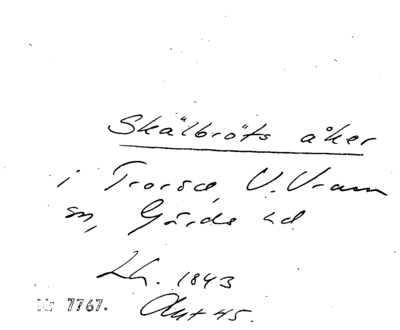 Skälbröts åker
i Trorsd, V. Vram
sn, Gärds hd
Lh. 1843
Nr 7767. Akt 45.